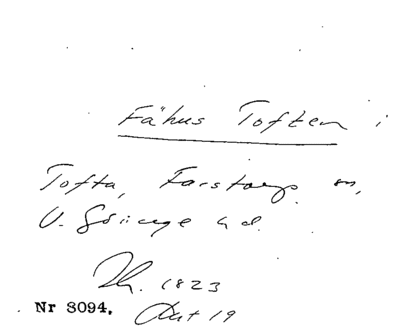 Fähus Toften i
Tofta, Farstorps sn,
V. Göinge hd.
1823
Nr 8094. Aut 19